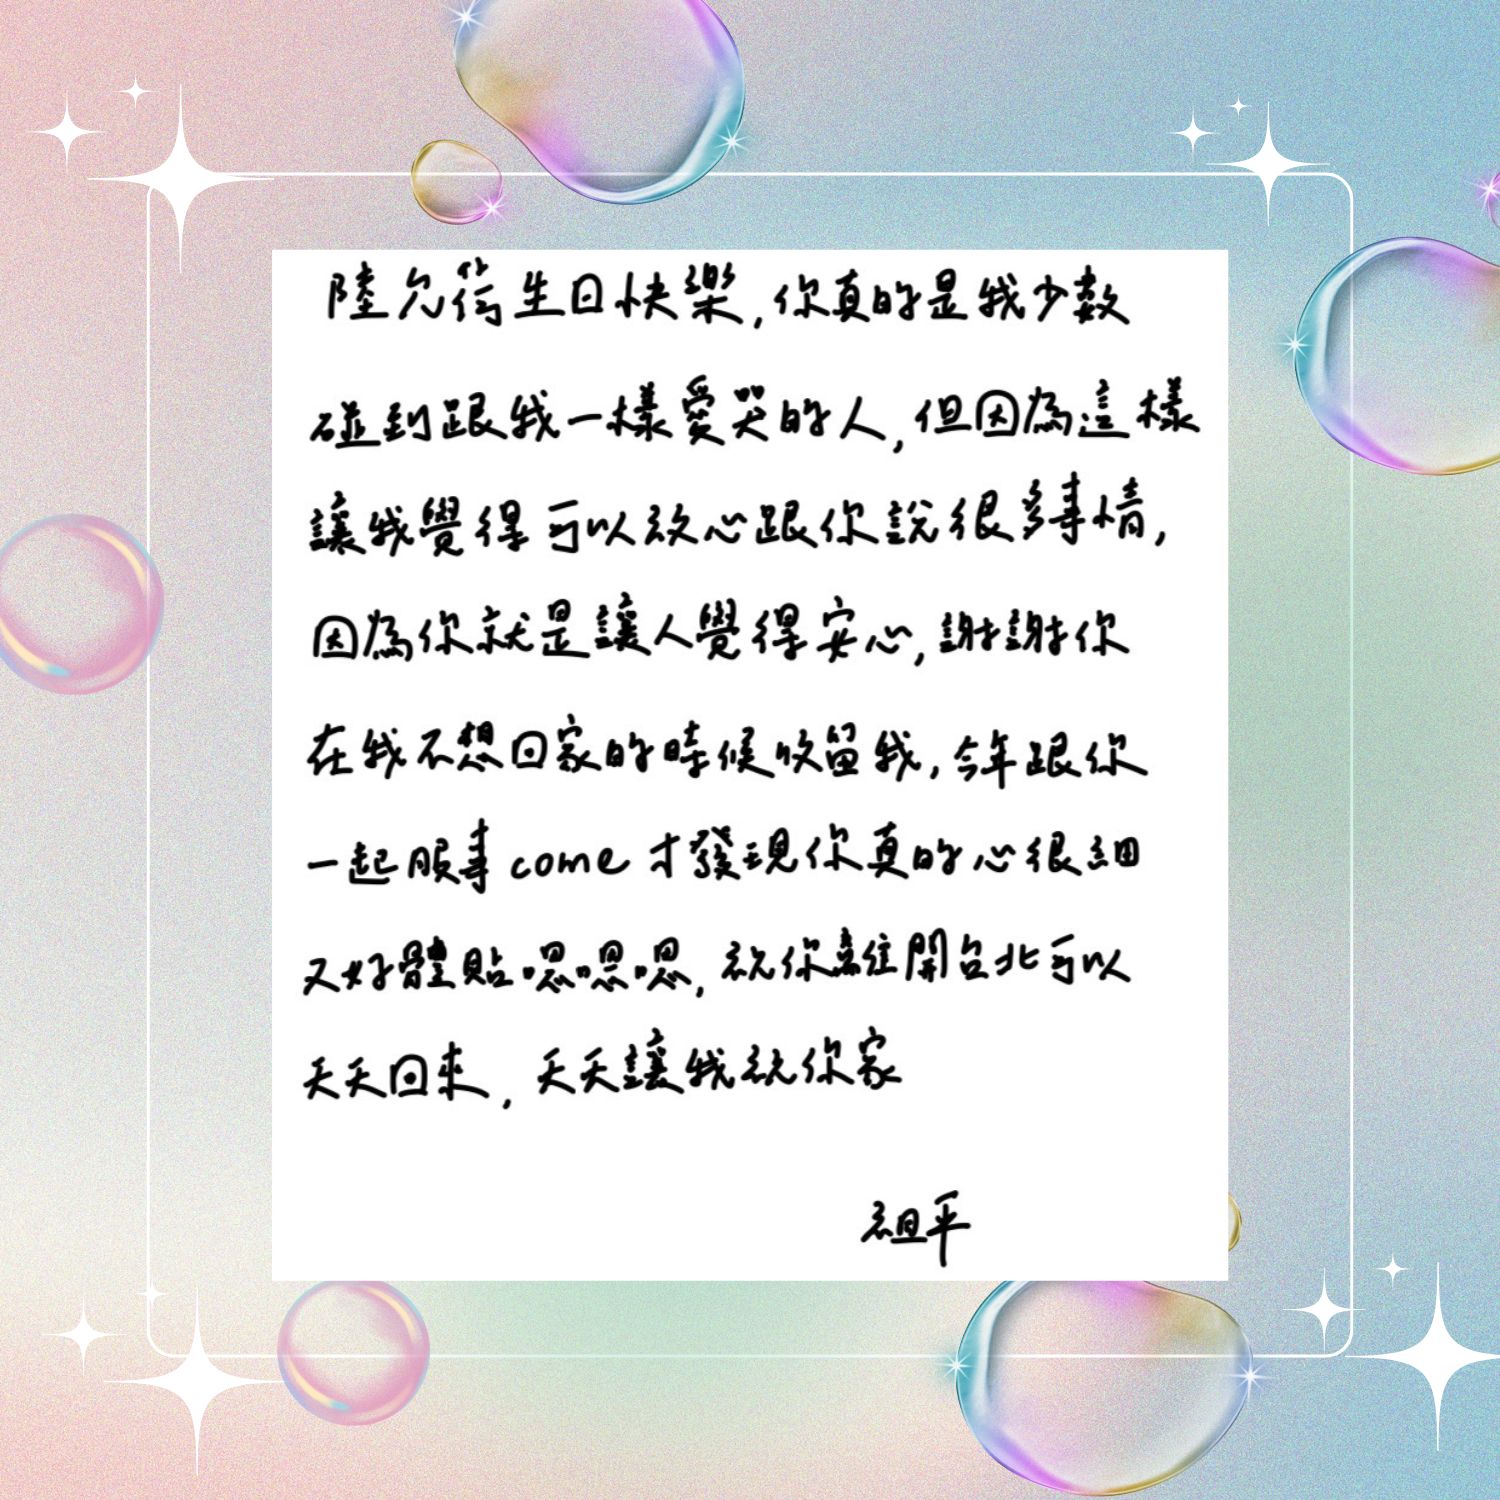 陸允蒨生日快樂,你真的是我少數
碰到跟我一樣愛哭的人,但因為這樣
讓我覺得可以放心跟你說很多事情,
因為你就是讓人覺得安心,謝謝你
在我不想回家的時候收留我,今年跟你
一起服事come才發現你真的心很細
又好體貼嗯嗯嗯,祝你離開台北可以
天天回來,天天讓我祝你家
祖平